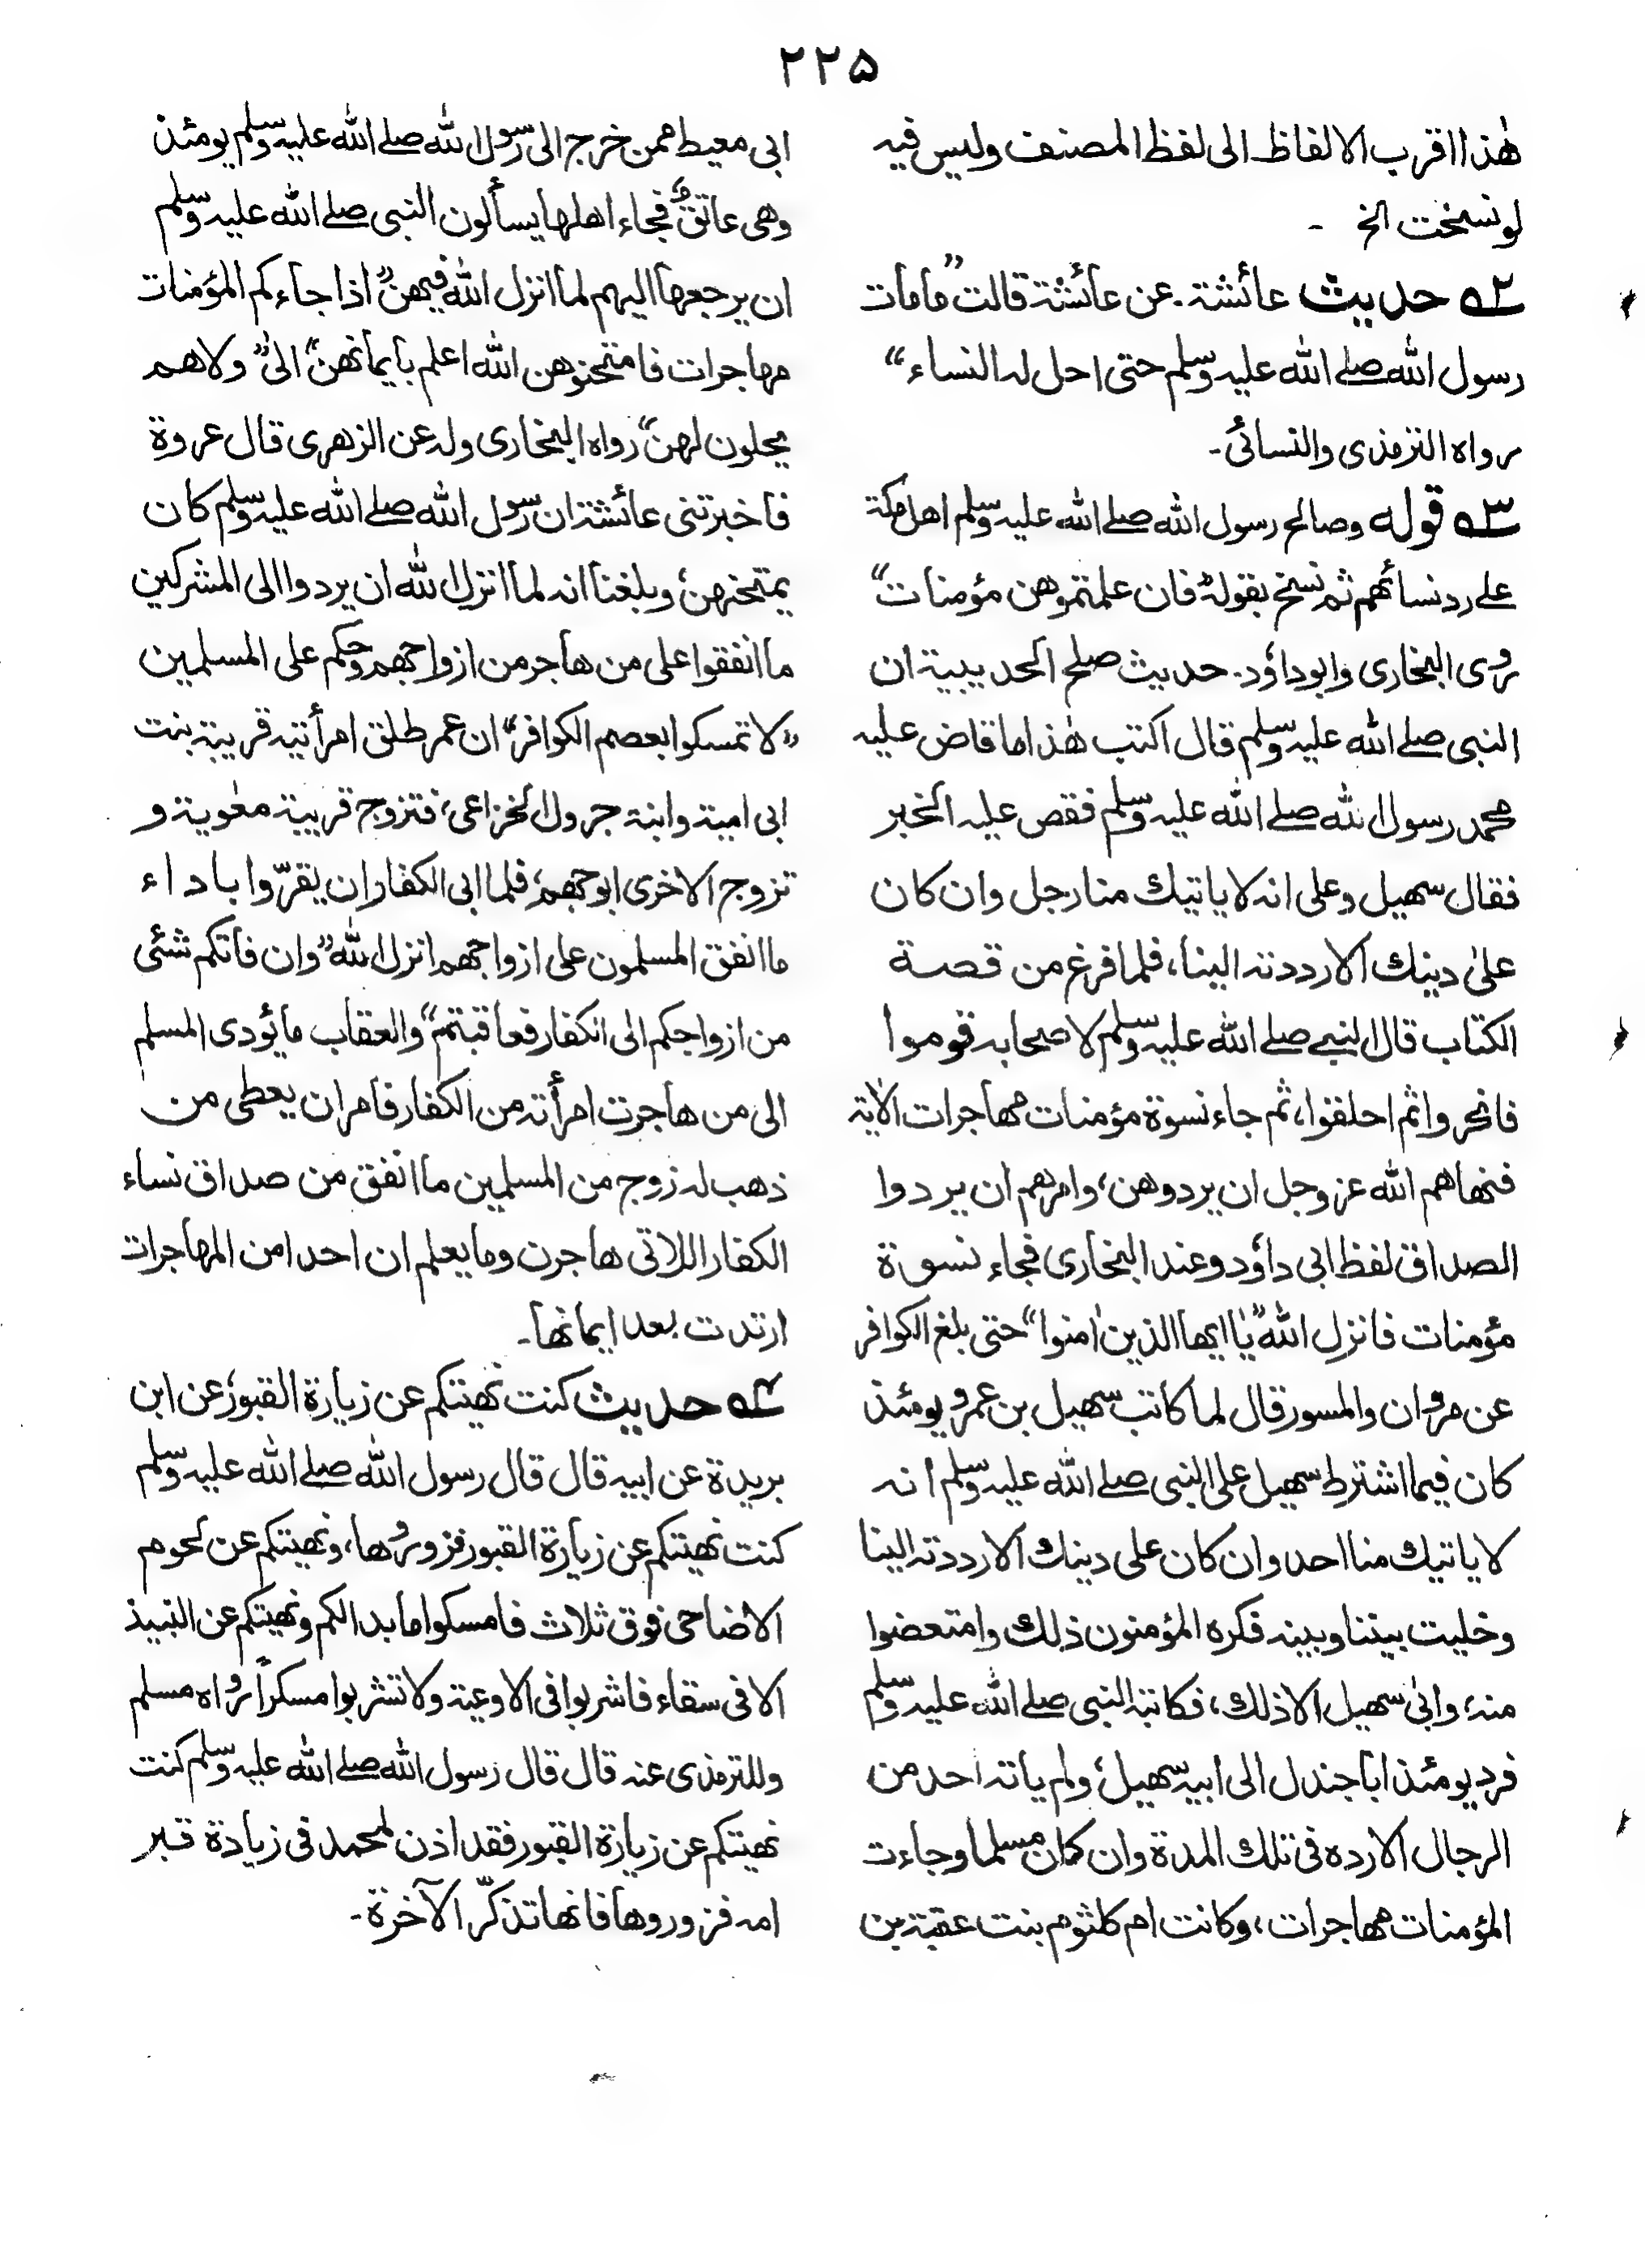 ۲۲۵
هٰذا اقرب الالفاظ الى لفظ المصنف وليس فيه
لو نسخت الخ -
۵۲ حديث عائشة. عن عائشة قالت "ما مات
رسول الله صلے الله عليه وسلم حتى احل له النساء"
رواه الترمذى والنسائى-
۵۳ قوله وصالح رسول الله صلے الله عليه وسلم اهل مكة
علے رد نسائهم ثم نسخ بقوله "فان علمتموهن مؤمنات"
روى البخارى وابوداؤد. حديث صلح الحديبية ان
النبى صلے الله عليه وسلم قال اكتب هٰذا ما قاض عليه
محمد رسول الله صلے الله عليه وسلم فقص عليه الخبر
فقال سهيل وعلى انه لا ياتيك منا رجل وان كان
علىٰ دينك الا رددته الينا، فلما فرغ من قصة
الكتاب قال النبے صلے الله عليه وسلم لاصحابه قوموا
فانحروا ثم احلقوا، ثم جاء نسوة مؤمنات مهاجرات الاٰية
فنهاهم الله عز وجل ان يردوهن، وامرهم ان يردوا
الصداق لفظ ابى داؤد وعند البخارى فجاء نسوة
مؤمنات فانزل الله "يٰا ايها الذين اٰمنوا" حتى بلغ الكوافر
عن مروان والمسور قال لما كاتب سهيل بن عمرو يومئذ
كان فيما اشترط سهيل على النبى صلے الله عليه وسلم انه
لا ياتيك منا احد وان كان على دينك الا رددته الينا
وخليت بيننا وبينه فكره المؤمنون ذلك وامتعضوا
منه، وابىٰ سهيل الا ذلك، فكاتبه النبى صلے الله عليه وسلم
فرد يومئذ ابا جندل الى ابيه سهيل، ولم ياته احد من
الرجال الا رده فى تلك المدة وان كان مسلما وجاءت
المؤمنات مهاجرات، وكانت ام كلثوم بنت عقبة بن
ابى معيط ممن خرج الى رسول الله صلے الله عليه وسلم يومئذ
وهى عاتق، فجاء اهلها يسألون النبى صلے الله عليه وسلم
ان يرجعها اليهم لما انزل الله فيهن "اذا جاءكم المؤمنات
مهاجرات فامتحنوهن الله اعلم بايمانهن" الىٰ "ولا هم
يحلون لهن" رواه البخارى وله عن الزهرى قال عروة
فاخبرتنى عائشة ان رسول الله صلے الله عليه وسلم كان
يمتحنهن، وبلغنا انه لما انزل الله ان يردوا الى المشركين
ما انفقوا على من هاجر من ازواجهم وحكم على المسلمين
"لا تمسكوا بعصم الكوافر" ان عمر طلق امرأتيه قريبة بنت
ابى امية وابنة جرول الخزاعى، فتزوج قريبة معٰوية و
تزوج الاخرى ابوجهم، فلما ابى الكفار ان يقرّوا باداء
ما انفق المسلمون على ازواجهم انزل الله "وان فاتكم شئى
من ازواجكم الى الكفار فعاقبتم" والعقاب ما يؤدى المسلم
الى من هاجرت امرأته من الكفار فامر ان يعطى من
ذهب له زوج من المسلمين ما انفق من صداق نساء
الكفار اللاتى هاجرن وما يعلم ان احدا من المهاجرات
ارتدت بعد ايمانها-
۵۴ حديث كنت نهيتكم عن زيارة القبور، عن ابن
بريدة عن ابيه قال قال رسول الله صلے الله عليه وسلم
كنت نهيتكم عن زيارة القبور فزوروها، ونهيتكم عن لحوم
الاضاحى فوق ثلاث فامسكوا ما بدا لكم ونهيتكم عن النبيذ
الا فى سقاء فاشربوا فى الاوعية ولا تشربوا مسكراً رواه مسلم
وللترمذى عنه قال قال رسول الله صلے الله عليه وسلم كنت
نهيتكم عن زيارة القبور فقد اذن لمحمد فى زيادة قبر
امه فزوروها فانها تذكّر الآخرة-